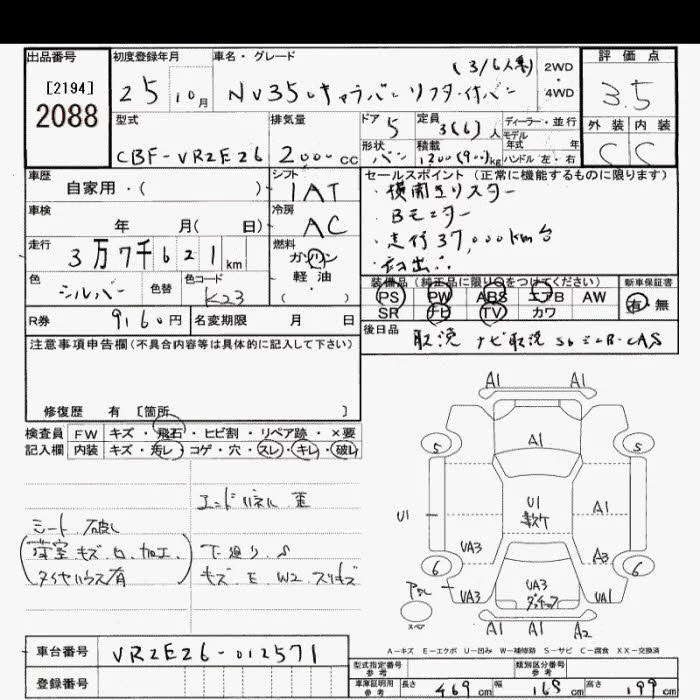 出品番号 初度登録年月 車名・グレード (3/6人乗) 2WD 評価点
[2194] 25 10月 NV350キャラバン リフター付バン ・4WD 3.5
2088
型式 排気量 ドア 定員 ディーラー・並行 外装 内装
5 3(6)人 モデル年式 年
CBF-VR2E26 2000cc 形状 バン 積載 1200(900)kg ハンドル 左・右 C C
車歴 シフト セールスポイント(正常に機能するものに限ります)
自家用・( ) IAT ・横開きリフター
車検 冷房 ・Bモニター
年 月( 日) AC ・走行37,000km台
走行 燃料
3万7千621km ガソリン
色 色替 色コード 軽油
シルバー K23 ・( )
装備品(純正品に限り○をつけてください) 新車保証書
PS PW ABS エアB AW 有・無
SR ナビ TV カワ
R券 9160円 名変期限 月 日 後日品
取説 ナビ取説
注意事項申告欄(不具合内容等は具体的に記入して下さい)
修復歴 有 [箇所 ]
検査員 FW キズ・飛石・ヒビ割・リペア跡・×要
記入欄 内装 キズ・汚レ・コゲ・穴・スレ・キレ・破レ
エンドパネル 歪
シート 破レ
荷室 キズ 凹 加工、 下廻り S
タイヤハウス有 キズ E W2 スリキズ
A1 A1
S A1 S
U1 U1 A1
UA3 A3
6 6
UA3 UA3 UA1
スペア
A1 A1 A2
A-キズ E-エクボ U-凹み W-補修跡 S-サビ C-腐食 XX-交換済
車台番号 VR2E26-012571
型式指定番号 参考 類別区分番号 参考
登録番号
車庫証明用 参考 長さ 469cm 幅 168cm 高さ 199cm